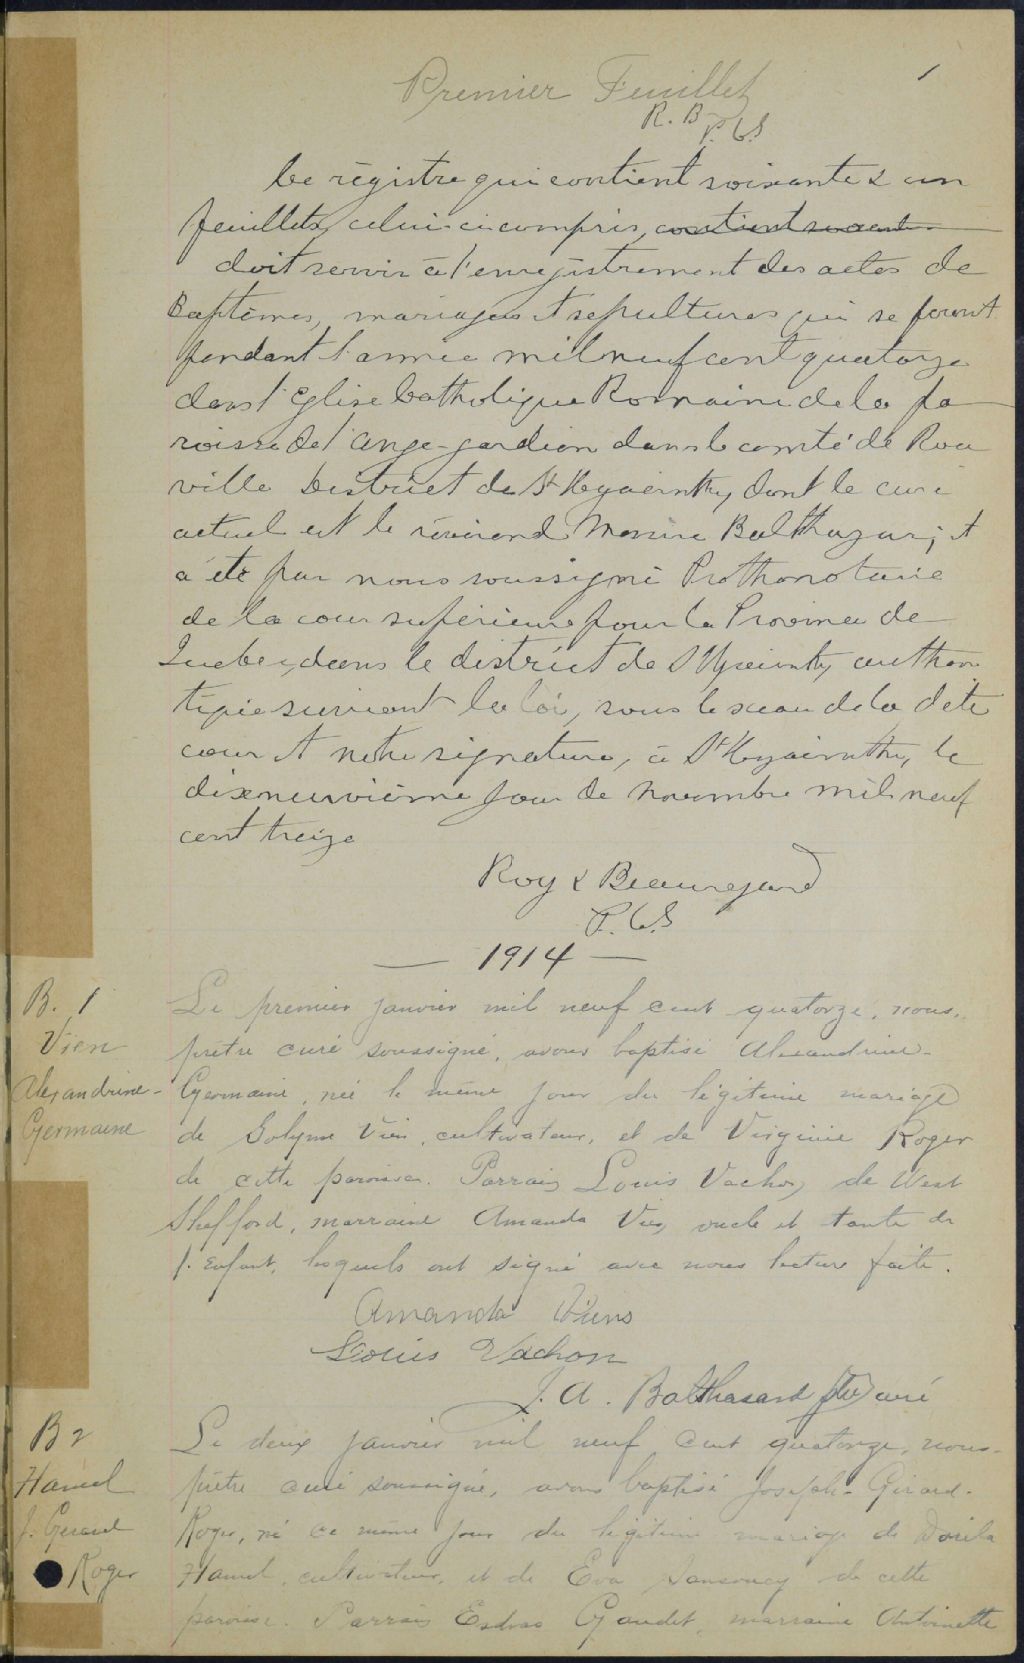 1
Premier Feuillet
R. B.
P.C.S
Ce régistre qui contient soixante & un
feuillets, celui-ci compris, contient soixant
doit servir à l'enregistrement des actes de
Baptêmes, mariages et sepultures qui se feront
pendant l'année mil neuf cent quatorze
dans l'Eglise Catholique Romaine de la pa
roisse de l'Ange-gardien dans le comté de Rou
ville District de St Hyacinthe, dont le curé
actuel est le révérend Messire Balthazar; et
a été par nous soussigné Prothonotaire
de la cour supérieure pour la Province de
Quebec, dans le district de St Hyacinthe, authen
tiquée suivant la loi, sous le sceau de la dite
cour et notre signature, à St Hyacinthe, le
dixneuvième jour de Novembre mil neuf
cent treize
Roy & Beauregard
P.C.S
— 1914 —
B. 1
Vien
Alexandrine-
Germaine
Le premier janvier mil neuf cent quatorze, nous,
prêtre curé soussigné, avons baptisé Alexandrine-
Germaine, née le même jour du légitime mariage
de Solyme Vien, cultivateur, et de Virginie Roger
de cette paroisse. Parrain Louis Vachon, de West
Shefford, marraine Amanda Vien, oncle et tante de
l'enfant, lesquels ont signé avec nous lecture faite.
Amanda Viens
Louis Vachon
J. A. Balthasard ptre curé
B 2
Hamel
J. Gerard
Roger
Le deux janvier mil neuf cent quatorze, nous
prêtre curé soussigné, avons baptisé Joseph-Gérard-
Roger, né ce même jour du légitime mariage de Dorila
Hamel, cultivateur, et de Eva Sansoucy de cette
paroisse Parrain Esdras Gaudet, marraine Antoinette